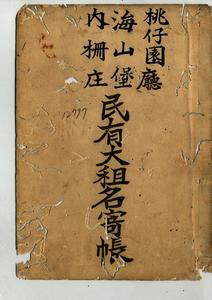 桃仔園廳
海山堡
内柵庄
民有大租名寄帳
12777